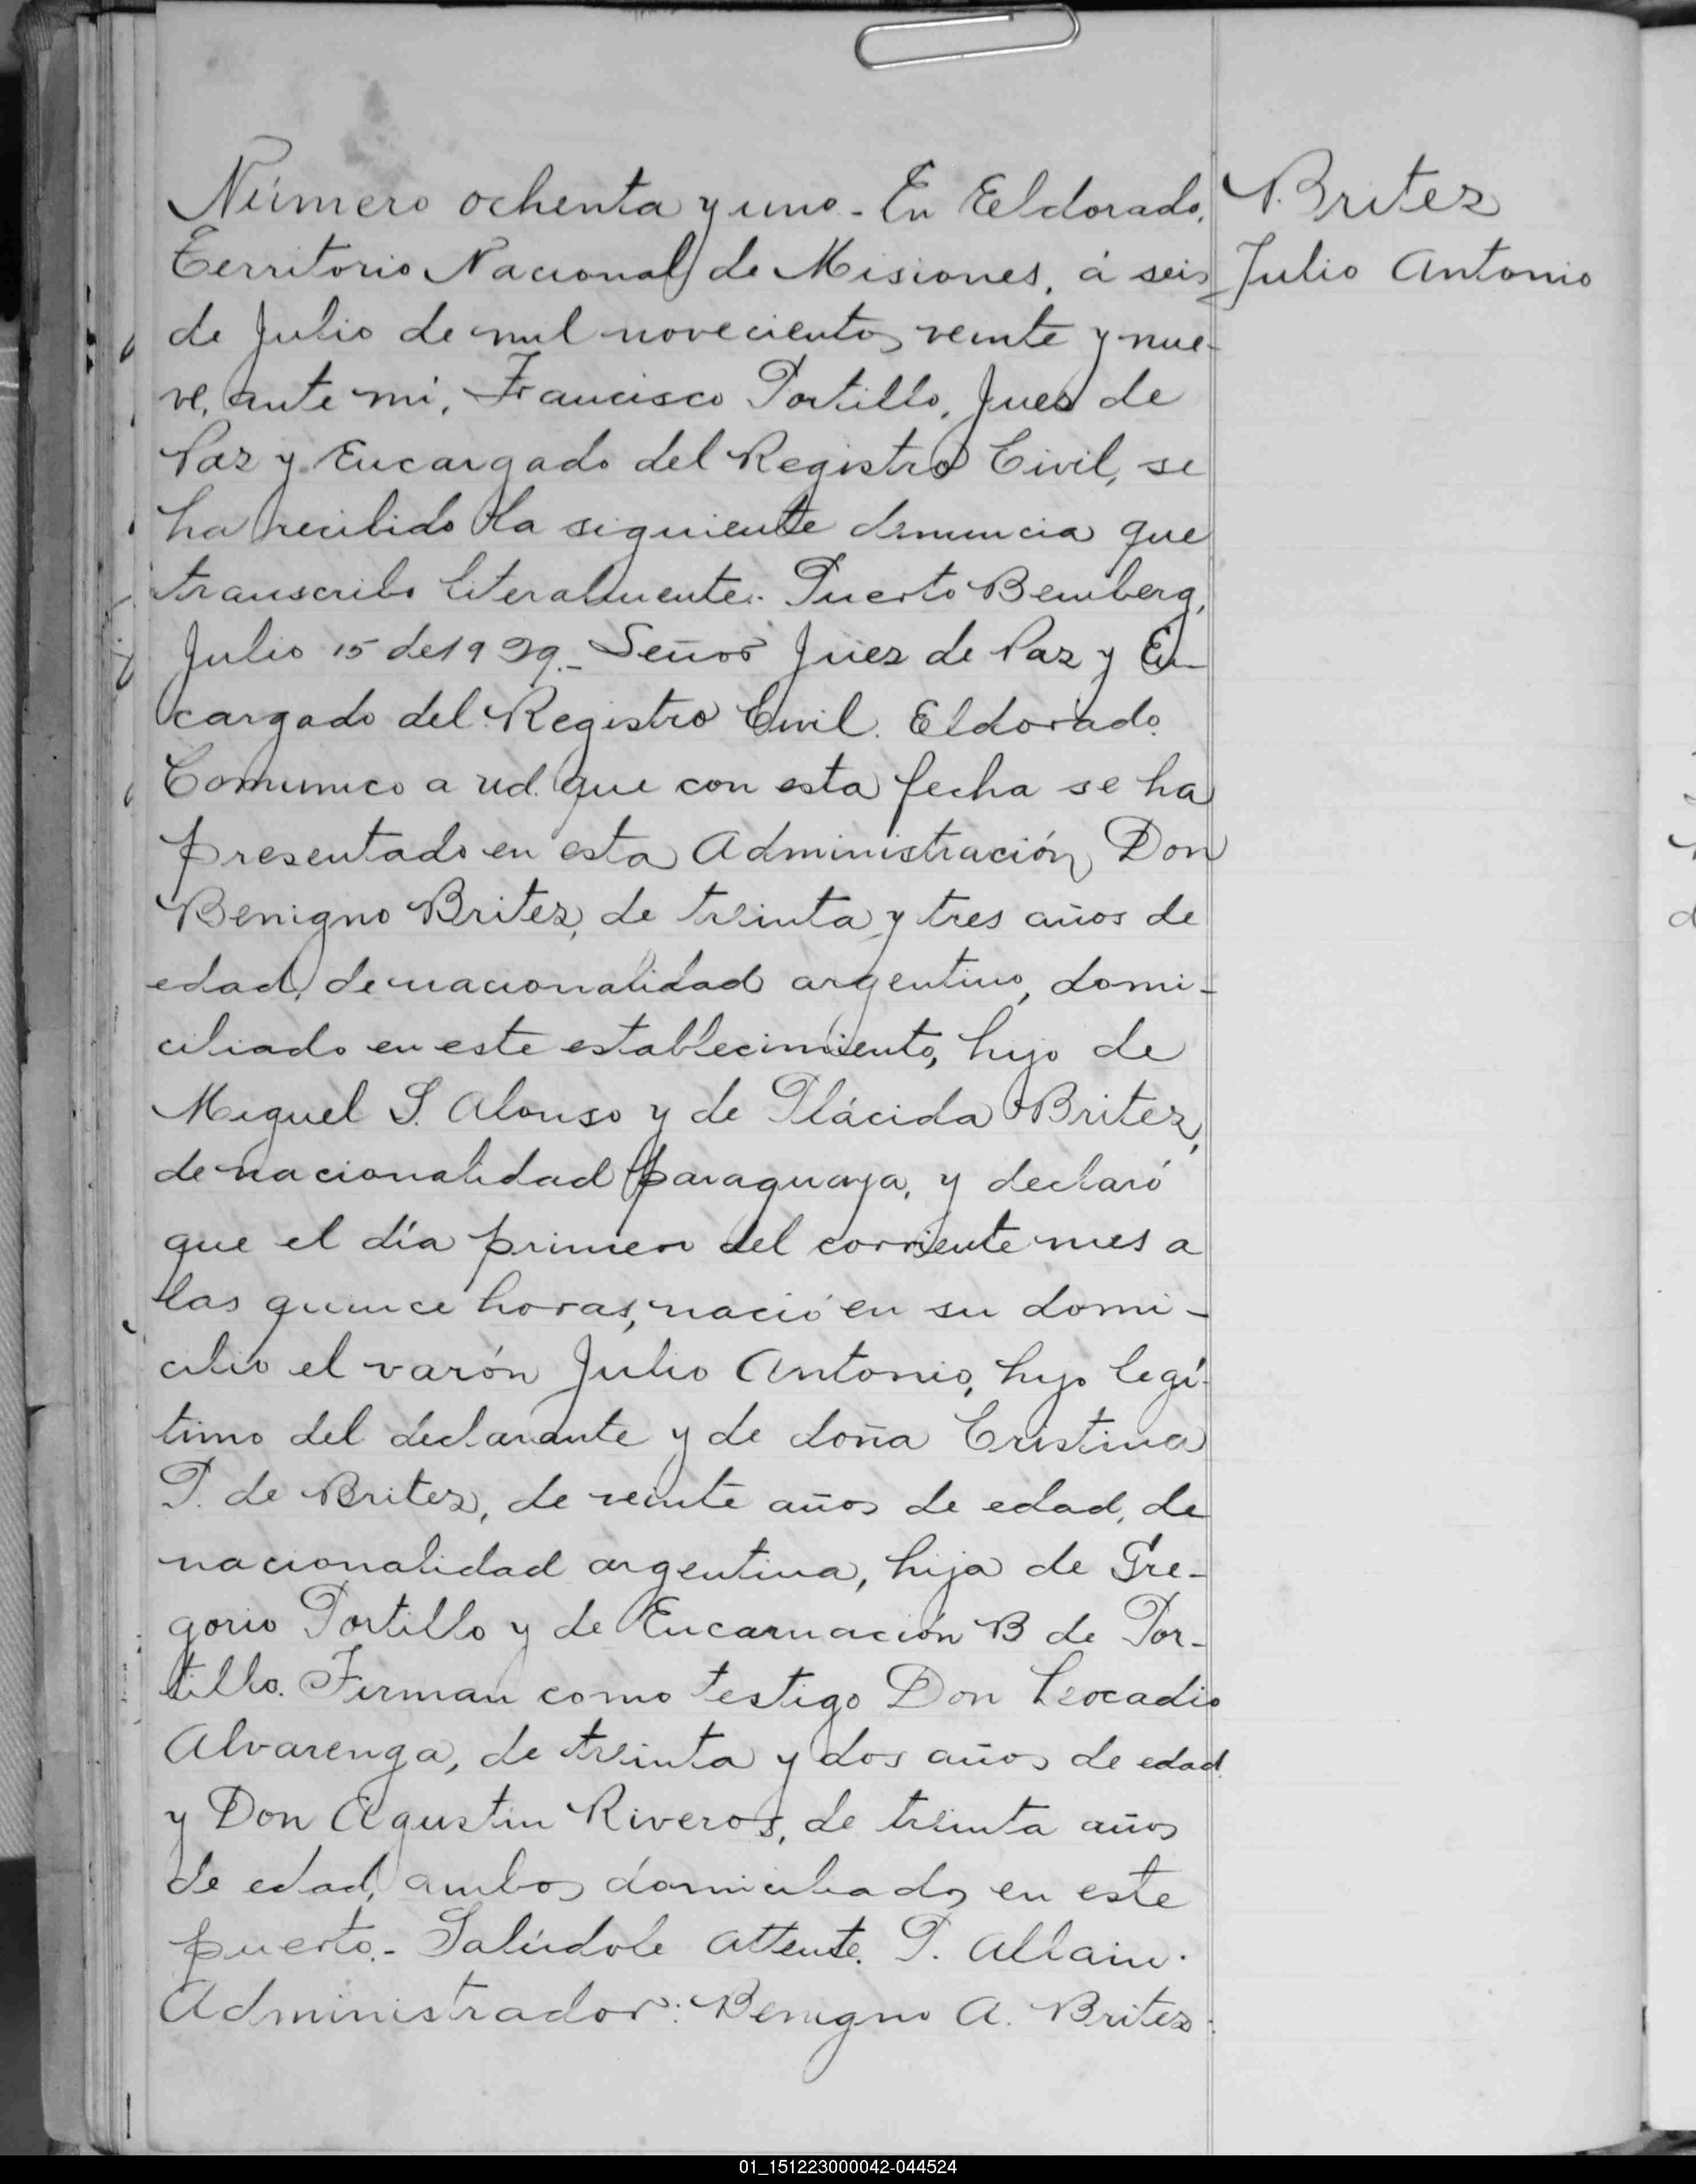 Número ochenta y uno.- En Eldorado,
Territorio Nacional de Misiones, á seis
de Julio de mil novecientos veinte y nue-
ve, ante mi, Francisco Portillo, Juez de
Paz y Encargado del Registro Civil, se
ha recibido la siguiente denuncia que
transcribo literalmente: Puerto Bemberg,
Julio 15 de 1929.- Señor Juez de Paz y En-
cargado del Registro Civil. Eldorado.
Comunico a ud. que con esta fecha se ha
presentado en esta Administración, Don
Benigno Britez, de treinta y tres años de
edad, de nacionalidad argentino, domi-
ciliado en este establecimiento, hijo de
Miguel S. Alonso y de Plácida Britez,
de nacionalidad paraguaya, y declaró
que el día primero del corriente mes a
las quince horas, nació en su domi-
cilio el varón Julio Antonio, hijo legí-
timo del declarante y de doña Cristina
P. de Britez, de veinte años de edad, de
nacionalidad argentina, hija de Gre-
gorio Portillo y de Encarnación B de Por-
tillo. Firman como testigo Don Leocadio
Alvarenga, de treinta y dos años de edad
y Don Agustin Riveros, de treinta años
de edad, ambos domiciliados en este
puerto.- Salúdole attente. P. Allain.
Administrador: Benigno A. Britez.
Britez
Julio Antonio
01_151223000042-044524